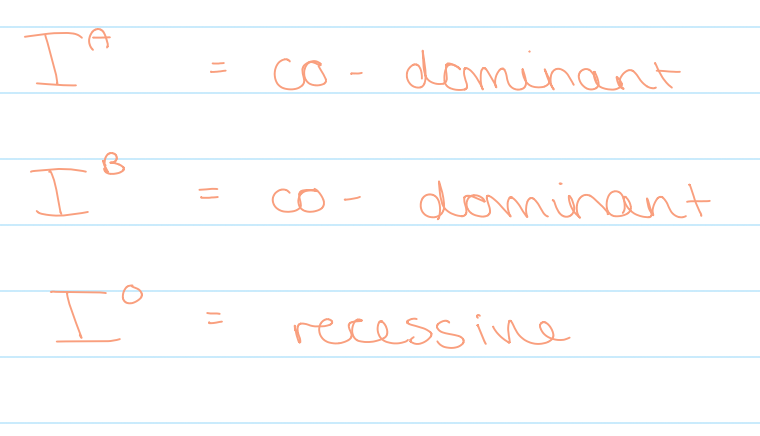 I^A = co - dominant
I^B = co - dominant
I^O = recessive